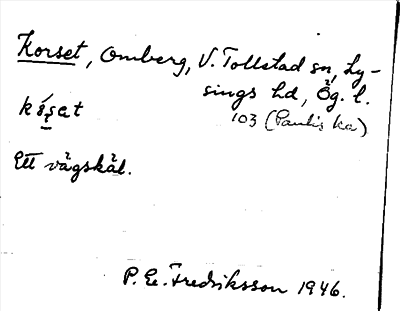 Korset, Omberg, V. Tollstad sn, Ly-
sings hd, Ög. l.
103 (Paulis ka)
Ett vägskäl.
P. E. Fredriksson 1946.